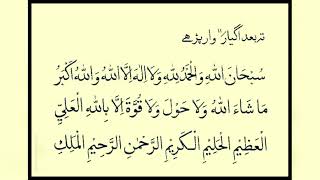 تہ بعد اگیارٕ وار پڑھے
سُبْحَانَ اللهِ وَالْحَمْدُ لِلهِ وَلَا اِلٰهَ اِلَّا اللهُ وَاللهُ اَكْبَرُ
مَا شَاءَ اللهُ وَلَا حَوْلَ وَلَا قُوَّةَ اِلَّا بِاللهِ الْعَلِيِّ
الْعَظِيْمِ الْحَلِيْمِ الْكَرِيْمِ الرَّحْمٰنِ الرَّحِيْمِ الْمَلِكِ